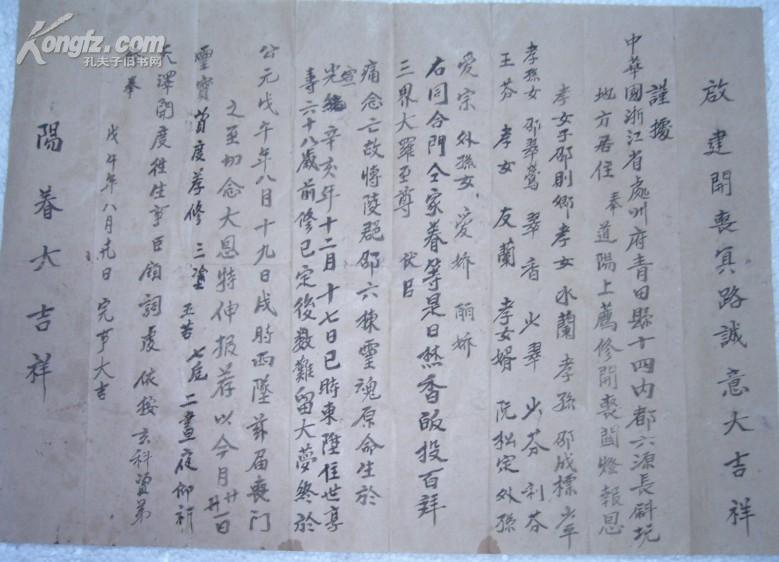 Kongfz.com
孔夫子旧书网
啟建開喪冥路誠意大吉祥
謹據
中華國浙江省處州府青田縣十四內都六源長斜坑
地方居住 奉道陽上薦修開喪開燈報恩
孝女子邵則鄉孝女水蘭孝孫邵成標少平
孝孫女邵翠鶯翠香少翠少芬利芬
王芬孝女友蘭孝女婿阮松定外孫
愛宗外孫女、愛嬌丽嬌
右同合門全家眷等是日焚香皈投百拜
三界大羅至尊 伏呂
痛念亡故將陵郡邵六棟靈魂原命生於
宣統辛亥年十二月十七日巳時東陞住世享
壽六十八歲前修已定後數難留大夢終於
公元戊午年八月十九日戌時西墜茲届喪門
之至切念大恩特伸报荐以今月廿廿一日
靈寶 首度孝修三塗五苦七危二晝夜仰祈
天澤開度往生事臣領詞虔依按玄科資弟
奉
戊午年八月 日完节大吉
陽眷大吉祥